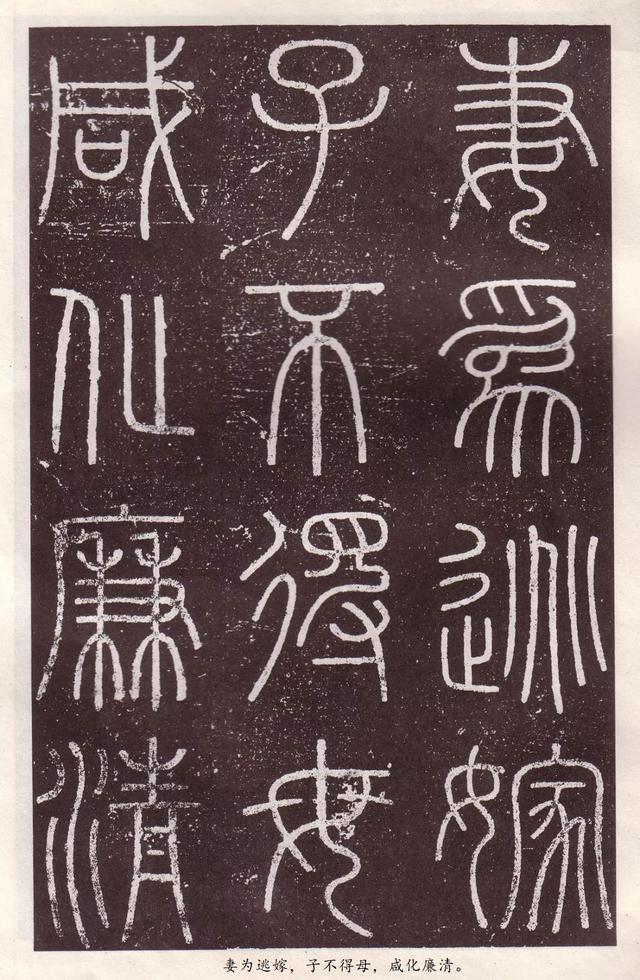 妻為逃嫁
子不得母
咸化廉清
妻为逃嫁，子不得母，咸化廉清。